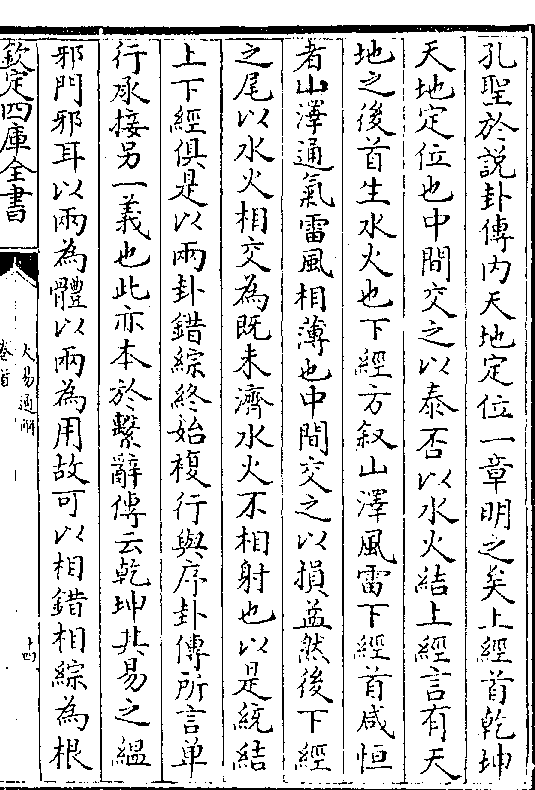 孔聖於說卦傳內天地定位一章明之矣上經首乾坤
天地定位也中間交之以泰否以水火結上經言有天
地之後首生水火也下經方叙山澤風雷下經首咸恒
者山澤通氣雷風相薄也中間交之以損益然後下經
之尾以水火相交為既未濟水火不相射也以是統結
上下經俱是以兩卦錯綜終始複行與序卦傳所言單
行承接另一義也此亦本於繫辭傳云乾坤其易之緼
邪門邪耳以兩為體以兩為用故可以相錯相綜為根
欽定四庫全書
大易通解
卷首
十四